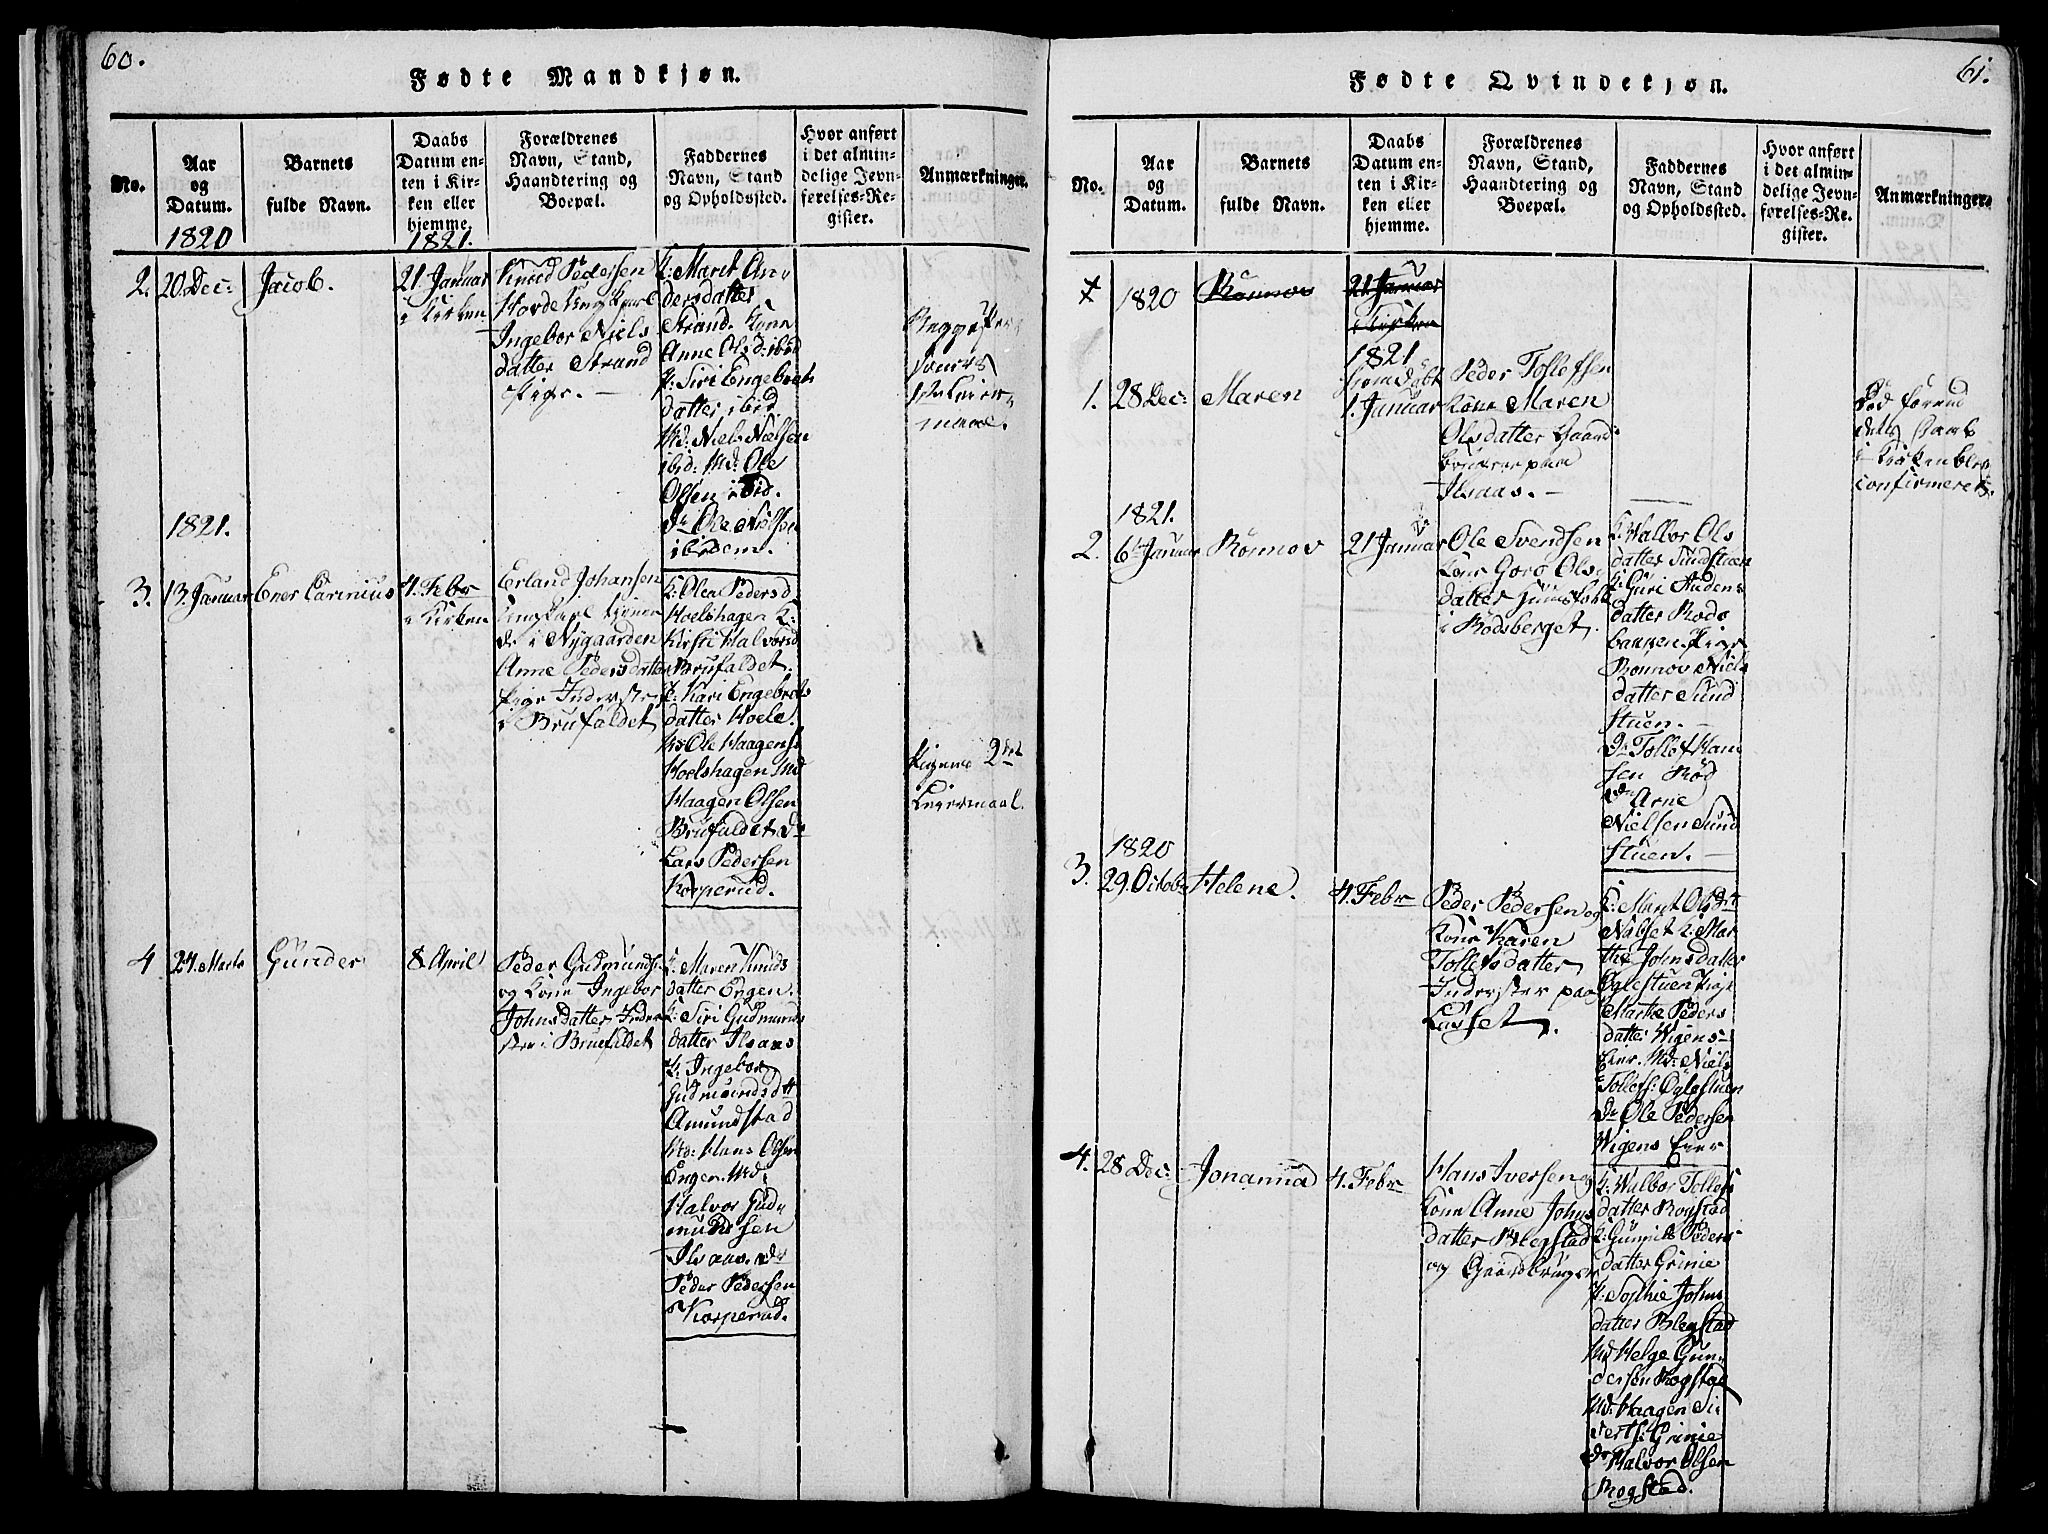 60.
Fødte Mandkjøn.
No.
Aar
og
Datum.
Barnets
fulde Navn.
Daabs
Datum en-
ten i Kir-
ken eller
hjemme.
Forældrenes
Navn, Stand,
Haandtering og
Boepæl.
Faddernes
Navn, Stand
og Opholdssted.
Hvor anført
i det almin-
delige Jevn-
førelses-Re-
gister.
Anmærkninger.
1820
1821.
2.
20 Dec:
Jacob.
21 Januar
i Kirken
Knud Pedersen
Ingebor Niels
datter Strand
Pige. —
K: Marit An
dersdatter
Strand. Kone
Anne Olsd: ibid
P: Siri Engebrets
datter ibid.
Md: Niels Nielsen
ibid: Md: Ole
Olsen ibid.
Dr Ole Nielsen
ibidem.
1821.
3.
13 Januar
Ener Carinius
4. Febr
i Kirken
Erland Johansen
de i Nygaarden
Anne Pedersdatter
Pige Inderste
i Brufaldet
K: Olea Pedersd
Hoelshagen K:
Kirsti Halvorsd
Brufaldet.
P: Kari Engebrets
datter Hoele.
Md Ole Haagens
Hoelshagen Md
Haagen Olsen
Brufaldet Dr
Lars Pedersen
Korperud.
Pigens 2det
Leiermaal.
4
24. Marts
Gunder
8 April
Peder Gudmunds.
og Kone Ingebor
Johnsdatter Inder
ste i Bruefaldet
K: Maren Knuds
datter Engen.
K: Siri Gudmunds
datter Ilsaas
P: Ingebor
Gudmundsdtt
Amundstad
Md: Hans Olsen
Engen. Md:
Halvor Gud
mundsen
Ilsaas. Dr
Peder Pedersen
Korperud.
61.
Fødte Qvindekjøn.
No.
Aar
og
Datum.
Barnets
fulde Navn.
Daabs
Datum en-
ten i Kir-
ken eller
hjemme.
Forældrenes
Navn, Stand,
Haandtering og
Boepæl.
Faddernes
Navn, Stand
og Opholdssted.
Hvor anført
i det almin-
delige Jevn-
førelses-Re-
gister.
Anmærkninger.
1820
Rönnov
21 Januar
i Kirken
1821
1.
28 Dec:
Maren
Hiemdöbt
1. Januar
Peder Tollefsen
Kone Maren
Olsdatter Gaard
bruger paa
Ilsaas. —
Död förend
dets Daab
i Kirken blev
confirmeret.
1821.
2.
6t Januar
Rönnov
21 Januar
Ole Svendsen
Kone Goro Ols
datter Huusfolk
i Rödsberget.
K: Walbor Ols
datter Sundstuen
K: Guri Audens
datter Rods
bakken. Pige
Ronnov Niels
datter Sund
stuen. —
Dr Tollef Han
sen Rød
Dr Arne
Nielsen Sund
stuen. —
1820
3.
29. Octobr
Helene.
4. Febr
Peder Pedersen og
Kone Karen
Tollefsdatter
Inderster paa
Lasset.
K: Maret Olsdtt
Nabset K: Mar
the Johnsdatter
Oglestuen Pige
Marthe Peders
datter Wigens-
Eier. Md: Niels
Tollefs: Oglestuen
Dr Ole Pedersen
Wigens Eier
4.
28 Dec:
Johanna
4. Febr
Hans Iversen og
Kone Anne Johns
datter Blegstad
og Gaardbruger
K: Walbor Tollefs
datter Rogstad
K: Gunnild Peders
datter Grinie
P: Sophie Johns
datter Blegstad
Md Helge Gun
dersen Rogstad
Md: Haagen Si
verts: Grinie
Dr Halvor Olsen
Rogstad.